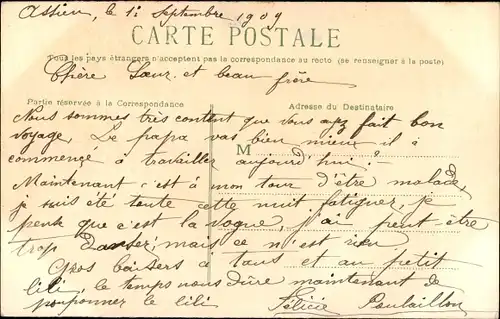 Assieu, le 1i Septembre 1909
CARTE POSTALE
Tous les pays étrangers n'acceptent pas la correspondance au recto (se renseigner à la poste)
Chère Sœur et beau frère
Partie réservée à la Correspondance
Adresse du Destinataire
Nous sommes très content que vous ayez fait bon
voyage, Le papa vas bien mieux il à
M
commençé à travailler aujourd'hui;
Maintenant c'est à mon tour d'être malade,
je suis été toute cette nuit fatiguée, je
pense que c'est la vogue, j'ai peut-être
trop danser; mais ce n'est rien
Gros baisers à tous et au petit
lili, le temps nous dure maintenant de
pouponner le lili Félicie Poulaillon